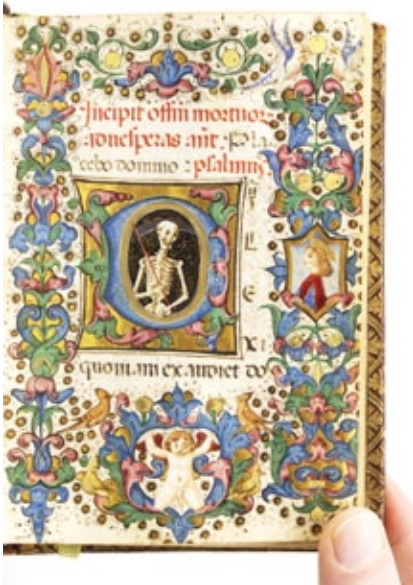 Incipit offm mortuor
aduesperas ant. Pla
cebo domino : psalmus.
D
I
L
E
XI
quoniam exaudiet do